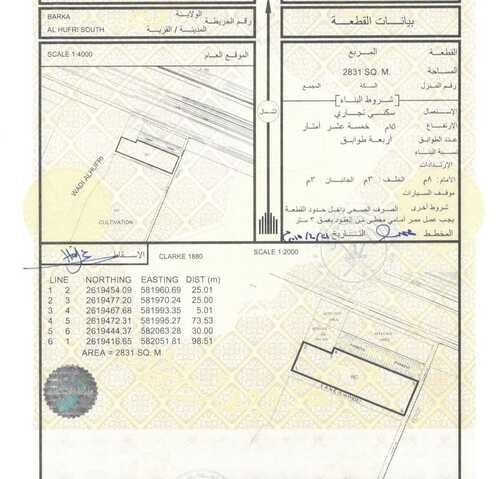 الولاية
BARKA
رقم الخريطة
AL HUFRI SOUTH
المدينة / القرية
SCALE 1:4000
الموقع العام
WADI ALHUFRI
CULTIVATION
بيانات القطعة
القطعة
المربع
المساحة
2831 SQ. M.
رقم المنزل
السكة
المجمع
شروط البناء
الإستعمال
سكني تجاري
الإرتفاع
١٥م خمسة عشر أمتار
عدد الطوابق
أربعة طوابق
نسبة البناء
الإرتدادات
الأمام: ٨م الخلف: ٣م الجانبان: ٣م
موقف السيارات
شروط أخرى
الصرف الصحي داخل حدود القطعة
يجب عمل ممر أمامي مغطى من العقود بعمق ٣ متار
المخطط
التاريخ
شمال
الإسقاط
CLARKE 1880
SCALE 1:2000
LINE NORTHING EASTING DIST (m)
1 2 2619454.09 581960.69 25.01
2 3 2619477.20 581970.24 25.00
3 4 2619467.68 581993.35 5.01
4 5 2619472.31 581995.27 73.53
5 6 2619444.37 582063.28 30.00
6 1 2619416.65 582051.81 98.51
AREA = 2831 SQ. M